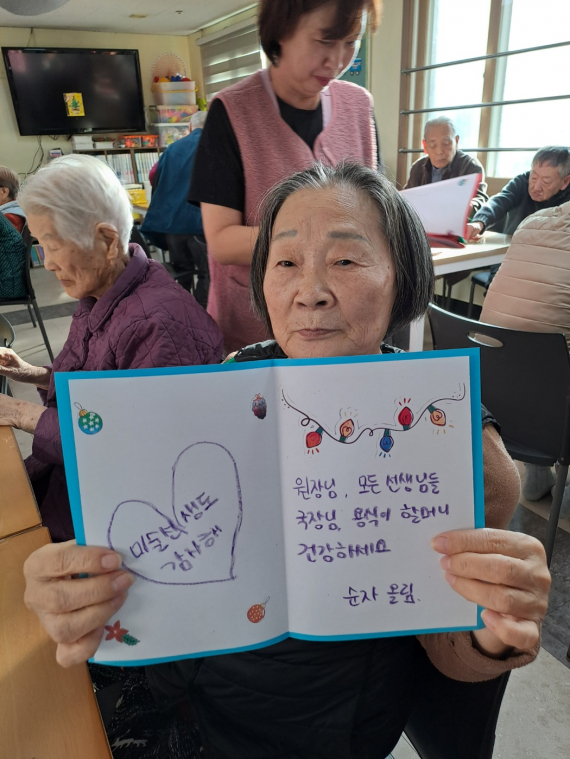 미들 선생도
감사해
원장님, 모든 선생님들
국장님, 용식이 할머니
건강하세요
순자 올림.